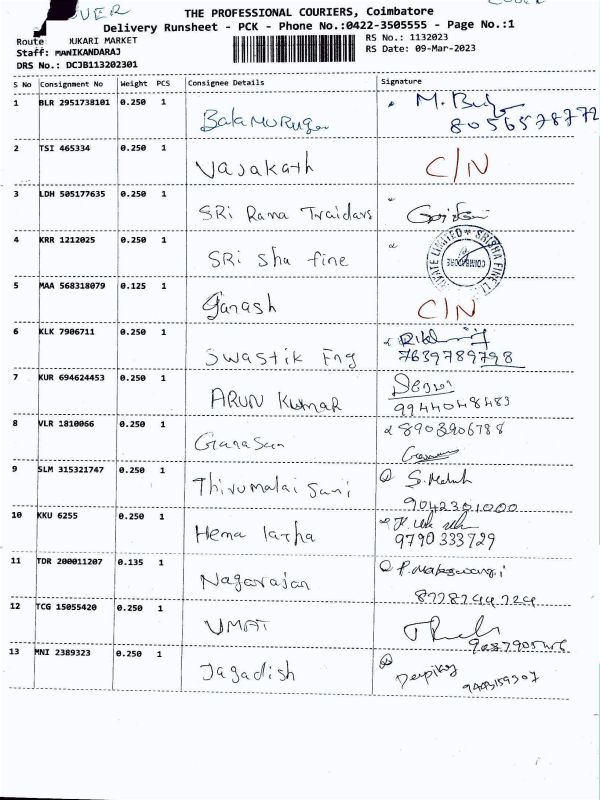 OVER
THE PROFESSIONAL COURIERS, Coimbatore
Delivery Runsheet - PCK - Phone No.:0422-3505555 - Page No.:1
Route UKARI MARKET RS No.: 1132023
Staff: MANIKANDARAJ RS Date: 09-Mar-2023
DRS No.: DCJB113202301
S No Consignment No Weight PCS Consignee Details Signature
1 BLR 2951738101 0.250 1 BalaMuRugan M. 
8056578772
2 TSI 465334 0.250 1 Vajakath C/N
3 LDH 505177635 0.250 1 SRi Rama Traidars
4 KRR 1212025 0.250 1 SRi Sha fine
5 MAA 568318079 0.125 1 Ganash C/N
6 KLK 7906711 0.250 1 Swastik Eng
7639789798
7 KUR 694624453 0.250 1 ARUN Kumar
9944048483
8 VLR 1810066 0.250 1 Ganasan 8903906788
9 SLM 315321747 0.250 1 Thirumalai Sami
9042301000
10 KKU 6255 0.250 1 Hema latha
9790333729
11 TDR 200011207 0.135 1 Nagarajan
12 TCG 15055420 0.250 1 UMAT
13 MNI 2389323 0.250 1 Jagadish